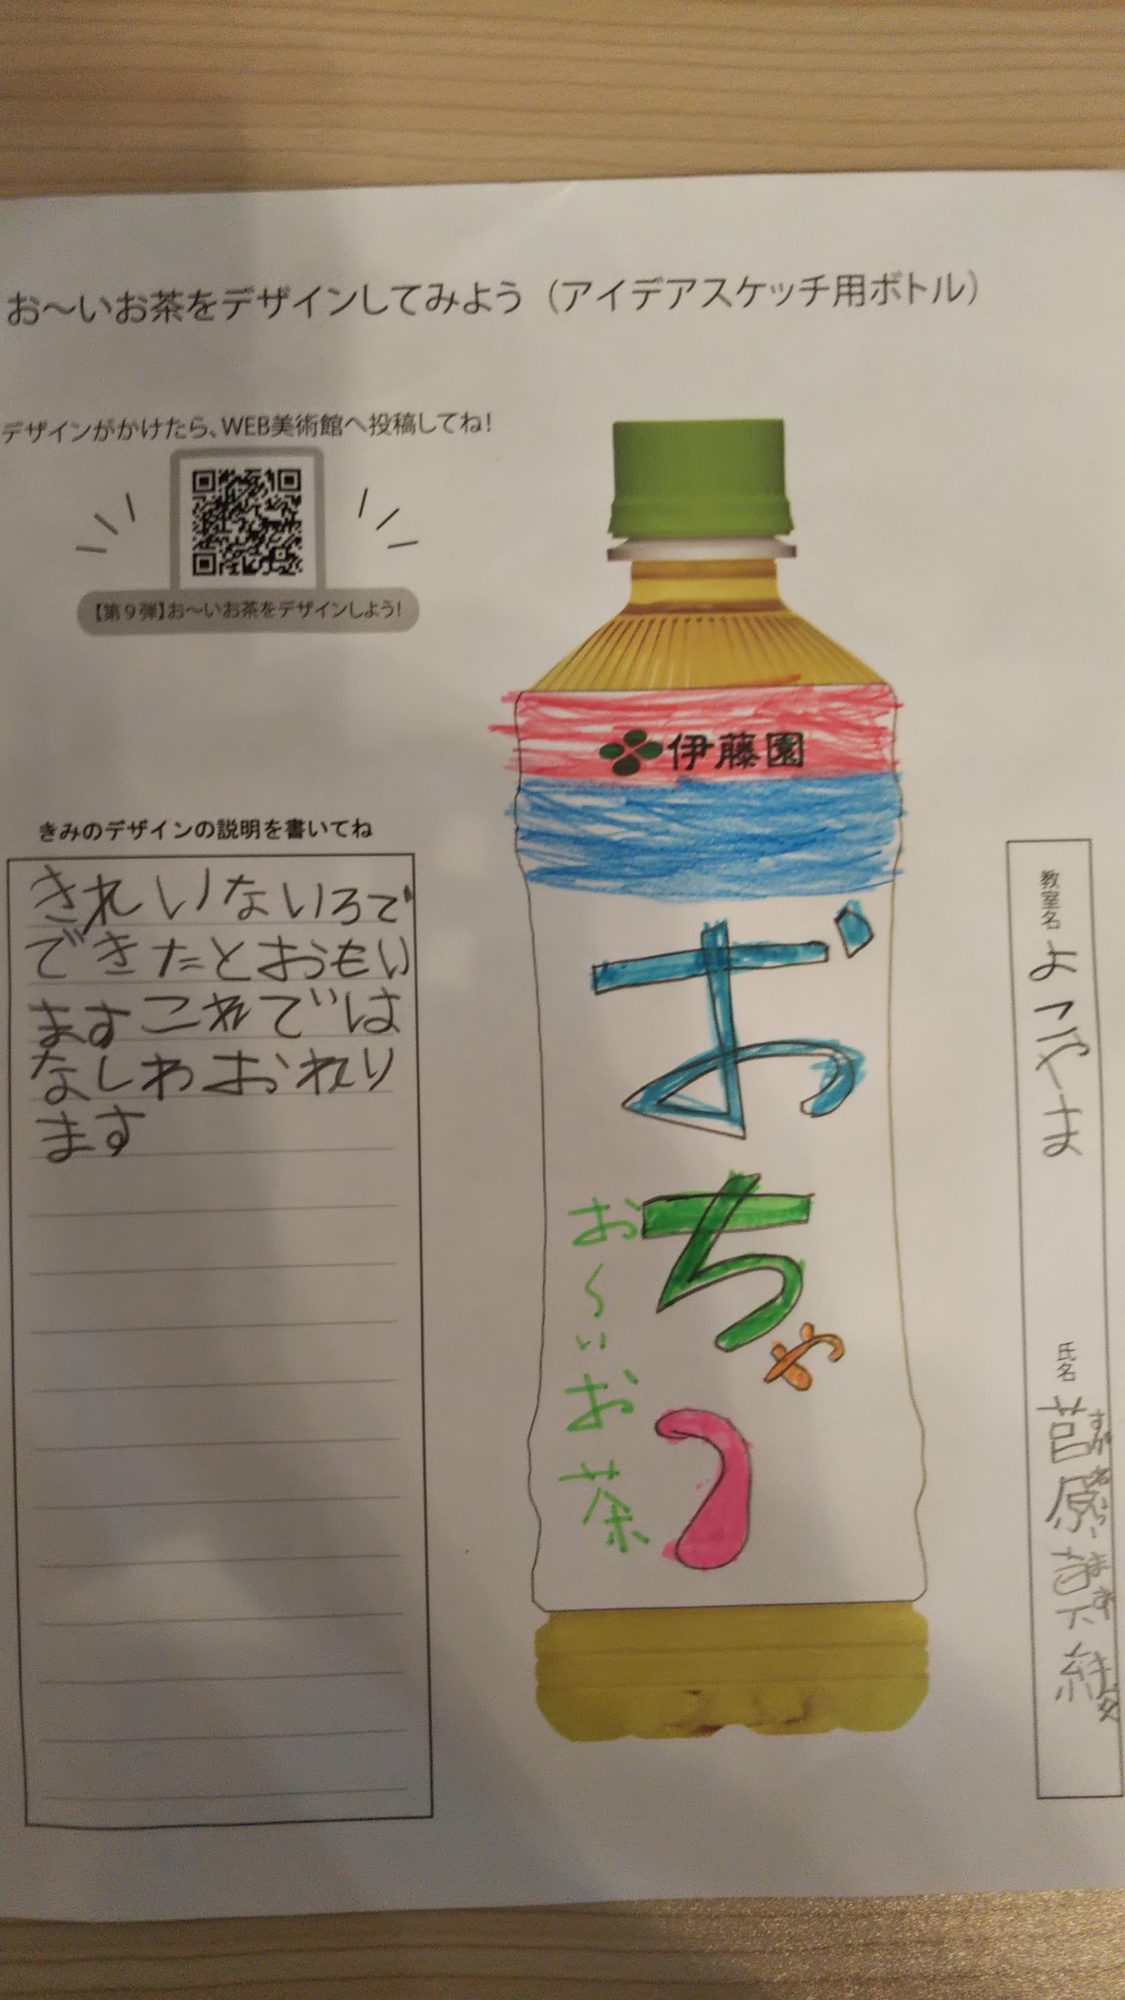 お〜いお茶をデザインしてみよう（アイデアスケッチ用ボトル）
デザインがかけたら、WEB美術館へ投稿してね！
【第９弾】お〜いお茶をデザインしよう！
伊藤園
きみのデザインの説明を書いてね
きれいないろで
できたとおもい
ますこれでは
なしわおわり
ます
おちゃ
お〜いお茶
教室名
よこやま
氏名
菅原
すがわら